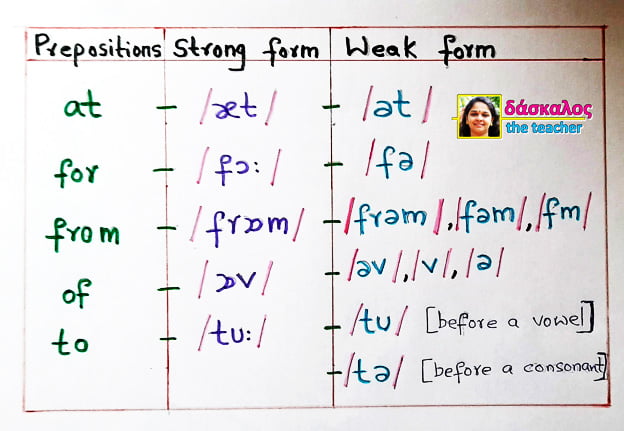 Prepositions Strong form Weak form
at - /æt/ - /ət/
δάσκαλος
the teacher
for - /fɔ:/ - /fə/
from - /frɒm/ - /frəm/, /fəm/, /fm/
of - /ɒv/ - /əv/, /v/, /ə/
to - /tʊ:/ - /tʊ/ [before a vowel]
- /tə/ [before a consonant]